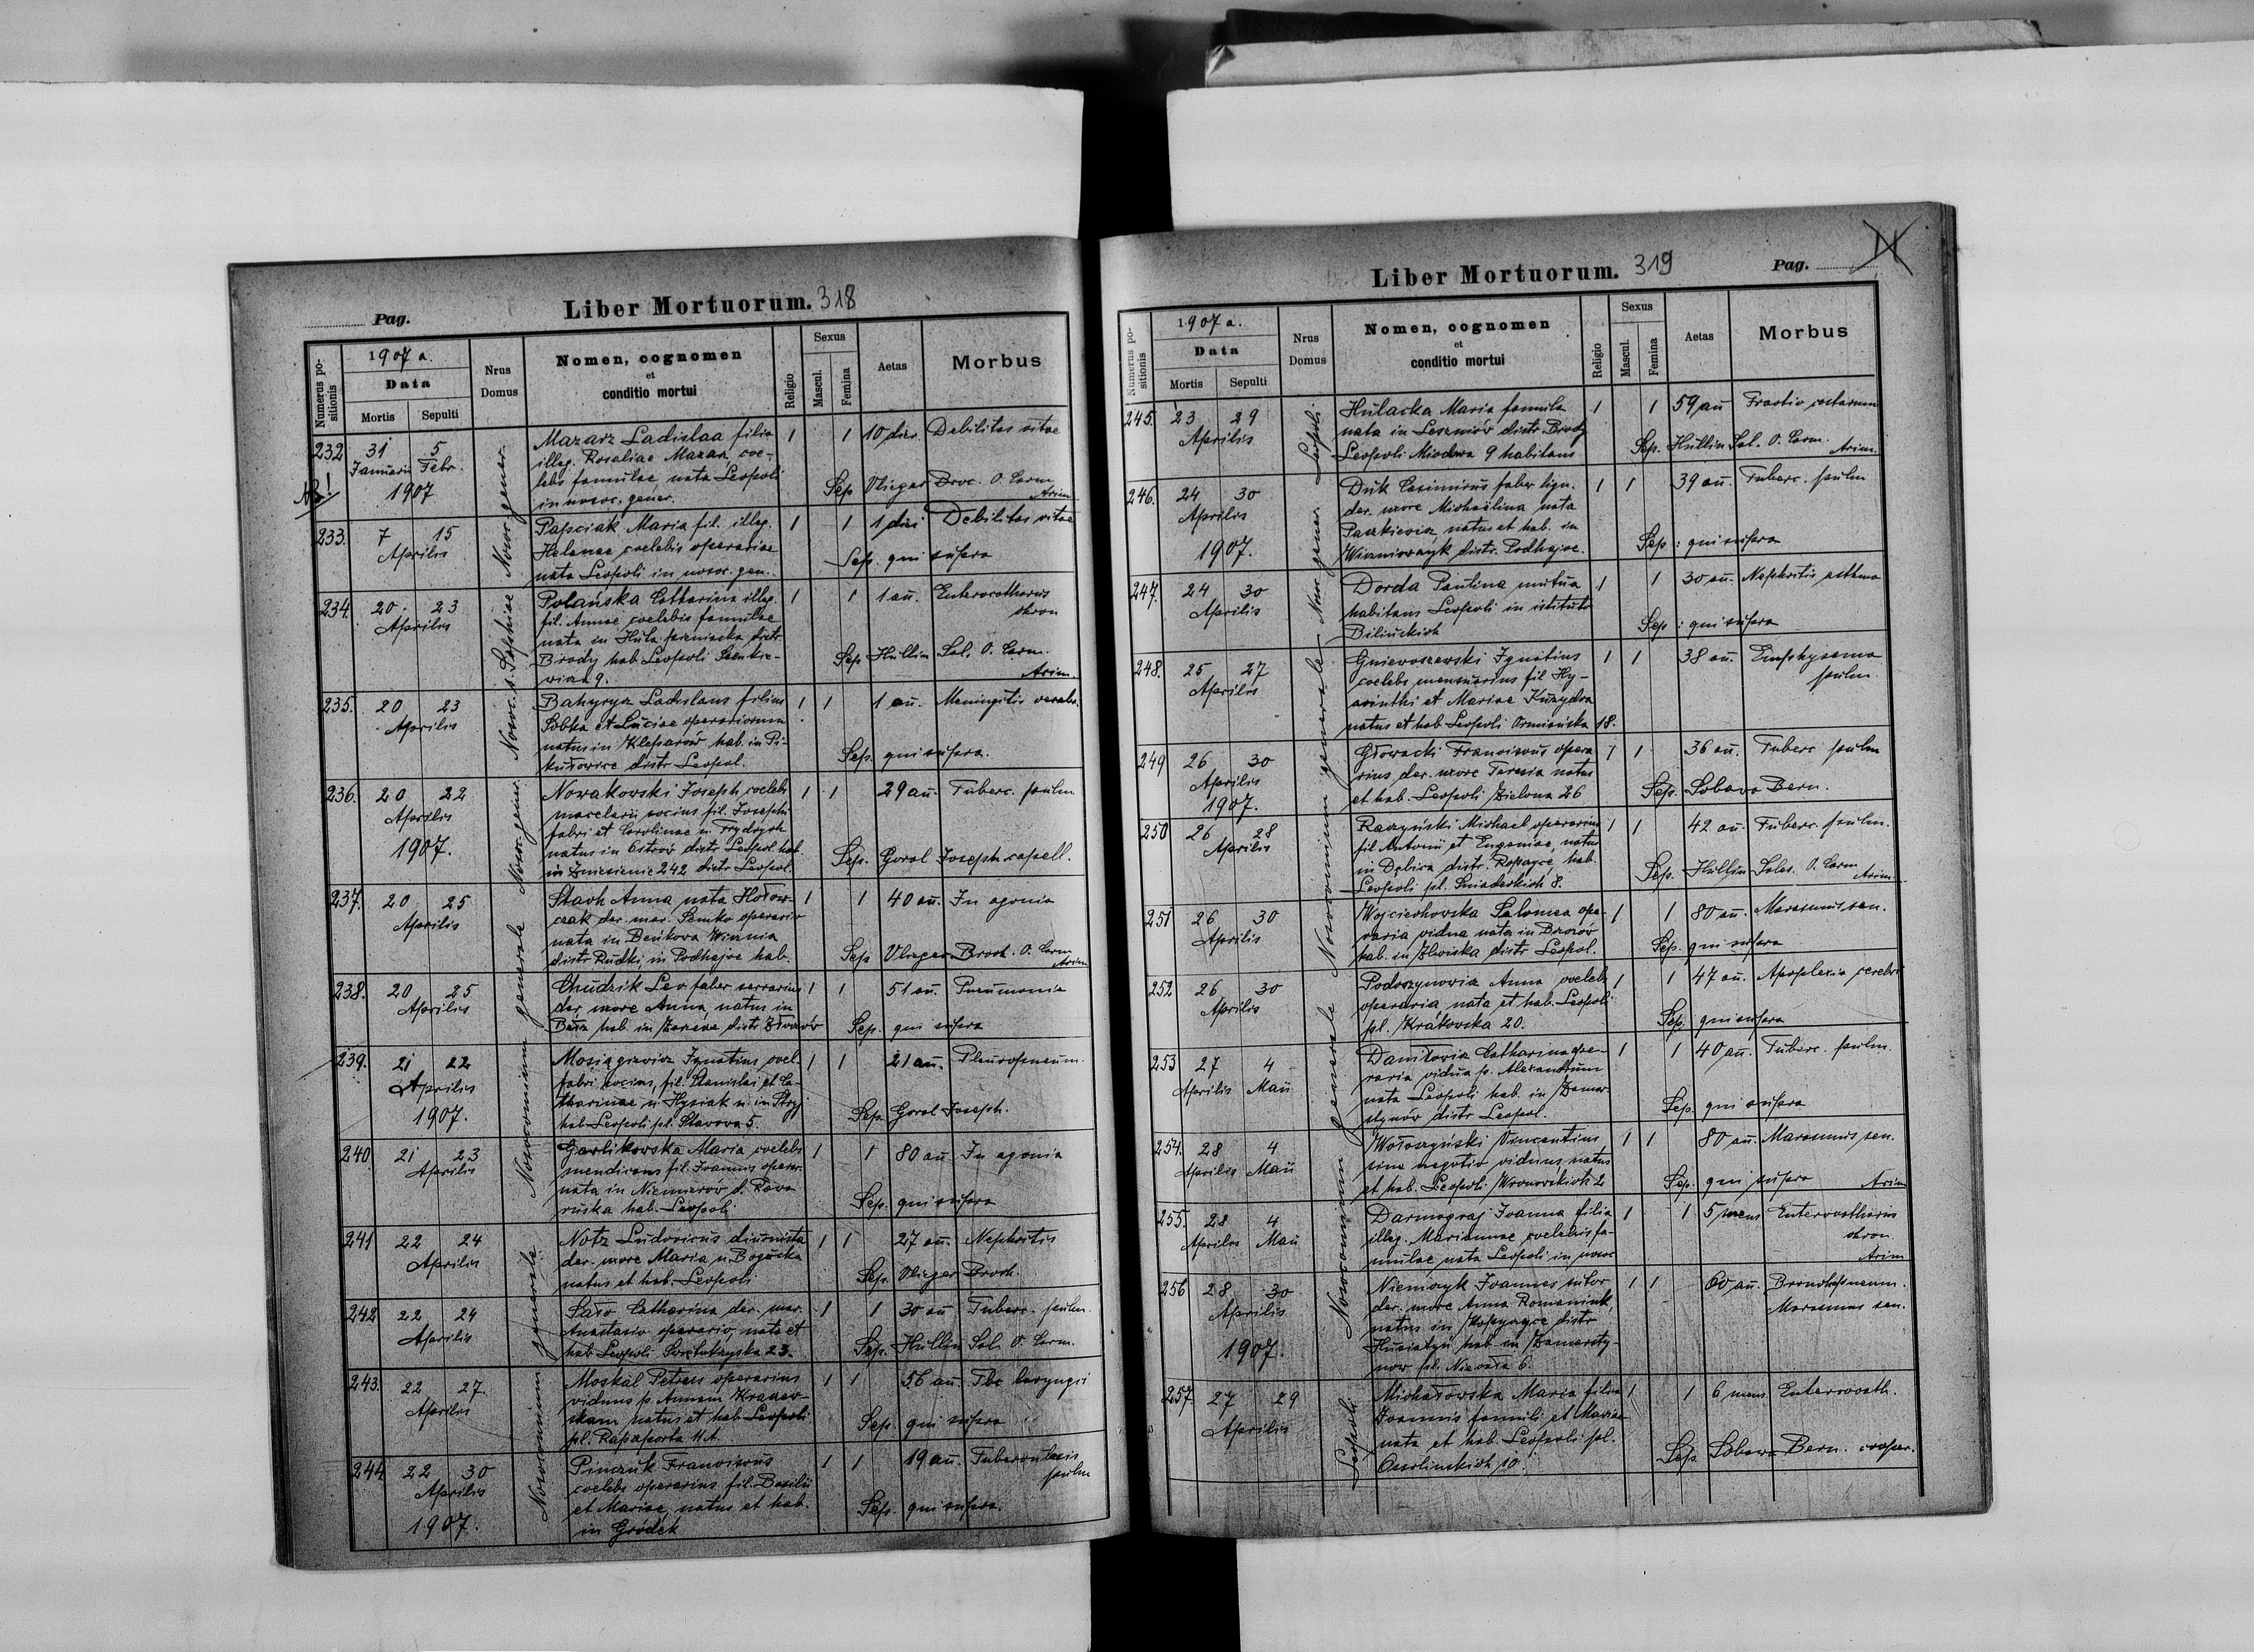 Pag.
Liber Mortuorum. 318
Numerus positionis
1907 a.
Data
Mortis
Sepulti
Nrus Domus
Nomen, cognomen
et
conditio mortui
Religio
Sexus
Mascul.
Femina
Aetas
Morbus
Nosoc. s. Sophiae Nosor. gener.
Nosocomium generale Nosor. gener.
Nosocomium generale
232 31 5 Mazarz Ladislaa filia 1 1 10 dier. Debilitas vitae
Januarii Febr. illeg. Rosaliae Mazarz, coe-
1907 lebis famulae nata Leopoli Sep. Vlieger Broc. O. Carm.
in nosoc. gener. Arim.
233. 7 15 Papciak Maria fil. illeg. 1 1 1 diei Debilitas vitae
Aprilis Helenae coelebis operariae Sep. qui supra
nata Leopoli in nosoc. gen.
234. 20 23 Polańska Catharina illeg. 1 1 1 an. Enterocatharus
Aprilis fil. Annae coelebis famulae chron
nata in Huta pieniacka distr.
Brody hab. Leopoli Sienkie- Sep. Hüllin Sal. O. Carm.
wicza 9. Arim.
235. 20 23 Bahyrycz Ladislaus filius 1 1 1 an. Meningitis cerebr.
Aprilis Sobka et Luciae operariorum
natus in Kleparów hab. in Pi- Sep. qui supra.
kułowice distr. Leopol.
236. 20 22 Nowakowski Joseph coelebs 1 1 29 an. Tuberc. pulm
Aprilis macelarii socius, fil. Josephi
1907. fabri et Carolinae n. Frydrych
natus in Ostrów distr Leopol hab. Sep. Goral Joseph capell.
in Zniesienie 242 distr Leopol.
237. 20 25 Stach Anna nata Hołow- 1 1 40 an. In agonia
Aprilis czak der. mar. Semko operario
nata in Beńkowa Wisznia
distr Rudki, in Podhajce hab. Sep. Vlieger Broch. O. Carm
Arim
238. 20 25 Chudzik Leo faber serrarius 1 1 51 an. Pneumonia
Aprilis der. uxore Anna, natus in
Bełz hab. in Zarzcze distr Złoczów Sep. qui supra
239. 21 22 Mosiągiewicz Ignatius coel. 1 1 21 an. Pleuropneum.
Aprilis fabri socius, fil. Stanislai et Ca-
1907. tharinae n. Hysiak n. in Stryj Sep. Goral Joseph.
hab. Leopoli pl. Stawowa 5.
240. 21 23 Garlikowska Maria coelebs 1 1 80 an. In agonia
Aprilis mendicans fil. Joannis operar.
nata in Niemierów d. Rawa Sep. qui supra
ruska hab. Leopoli
241 22 24 Notz Ludovicus diurnista 1 1 27 an. Nephritis
Aprilis der. uxore Maria n Bogucka
natus et hab. Leopoli Sep. Vlieger Broch.
242 22 24 Saro Catharina der. mar. 1 1 30 an Tuberc. pulm.
Aprilis Anastasio operario, nata et
hab Leopoli 23. Sep. Hüllin Sal. O. Carm.
243. 22 27. Moskal Petrus operarius 1 1 56 an. Tbc laryngis
Aprilis viduus p. Annam
natus et hab. Leopoli Sep. qui supra
pl. Rapaporta 11 A.
244 22 30 Pinczuk Franciscus 1 1 19 an. Tuberculosis
Aprilis coelebs operarius fil. Basilii pulm
1907. et Mariae, natus et hab. Sep. qui supra.
in Gródek
Liber Mortuorum. 319
Pag.
Numerus positionis
1907 a.
Data
Mortis
Sepulti
Nrus Domus
Nomen, cognomen
et
conditio mortui
Religio
Sexus
Mascul.
Femina
Aetas
Morbus
Nosocomium generale Nosor. gener. Leopoli
Nosocomium generale
Leopoli
245. 23 29 Hulacka Maria famula 1 1 59 an Fractio costarum
Aprilis nata in Leszniów distr. Brody
Leopoli Miodowa 9 habitans Sep. Hüllin Sal. O. Carm. Arim.
246. 24 30 Duk Casimirus faber lign. 1 1 39 an. Tuberc. pulm
Aprilis der. uxore Michaëlina nata
1907. Paszkiewicz, natus et hab. in Sep: qui supra
Wiśniowczyk distr. Podhajce.
247. 24 30 Dorda Paulina mutua 1 1 30 an. Nephritis asthma
Aprilis habitans Leopoli in istituto
Bilińskich Sep: qui supra
248. 25 27 Gniewoszewski Ignatius 1 1 38 an. Emphysema
Aprilis coelebs mensuarius fil. Hy- pulm.
acinthi et Mariae Kurzydra
natus et hab Leopoli Ormiańska 18.
249 26 30 Głowacki Franciscus opera 1 1 36 an. Tuberc pulm
Aprilis rius der. uxore Teresia natus
1907. et hab. Leopoli Zielona 26 Sep. Sobawa Bern.
250 26 28 Raczyński Michael operarius 1 1 42 an. Tuberc. pulm.
Aprilis fil. Antonii et Eugeniae, natus
in Dębica distr. Ropczyce, hab. Sep. Hüllin Sales. O. Carm.
Leopoli pl. Śniadeckich 8. Arim.
251 26 30 Wojciechowska Salomea ope- 1 1 80 an. Marasmus sen.
Aprilis raria vidua nata in Brzozów
hab. in distr Leopol. Sep. qui supra
252 26 30 Podoszynowicz Anna coelebs 1 1 47 an. Apoplexia cerebri
Aprilis operaria, nata et hab. Leopoli
pl. Krakowska 20. Sep. qui supra
253 27 4 Daniłowicz Catharina ope- 1 1 40 an. Tuberc. pulm.
Aprilis Maii raria vidua p. Alexandrum
nata Leopoli hab. in Zamar- Sep. qui supra
stynów distr Leopol.
254. 28 4 Wołoszyński Vincentius 1 1 80 an. Marasmus sen.
Aprilis Maii sine negotio viduus, natus
et hab. Leopoli Wronowskich 2 Sep. qui supra Arim
255. 28 4 Darmograj Joanna filia 1 1 5 mens Enterocatharus
Aprilis Maii illeg. Mariannae coelebis fa- chron.
mulae nata Leopoli in nosoc Arim
256 28 30 Niemczyk Joannes sutor 1 1 60 an. Bronchopneum.
Aprilis der. uxore Anna Romaniuk, Marasmus sen.
1907. natus in Kopyczyce distr
Husiatyń hab in Zamarsty-
now pl. 6.
257. 27 29 Michałowska Maria filia 1 1 6 mens Enterocath.
Aprilis Joannis famuli et Mariae
nata et hab. Leopoli pl. Sep. Sobawa Bern. cooper.
Ossolińskich 10.